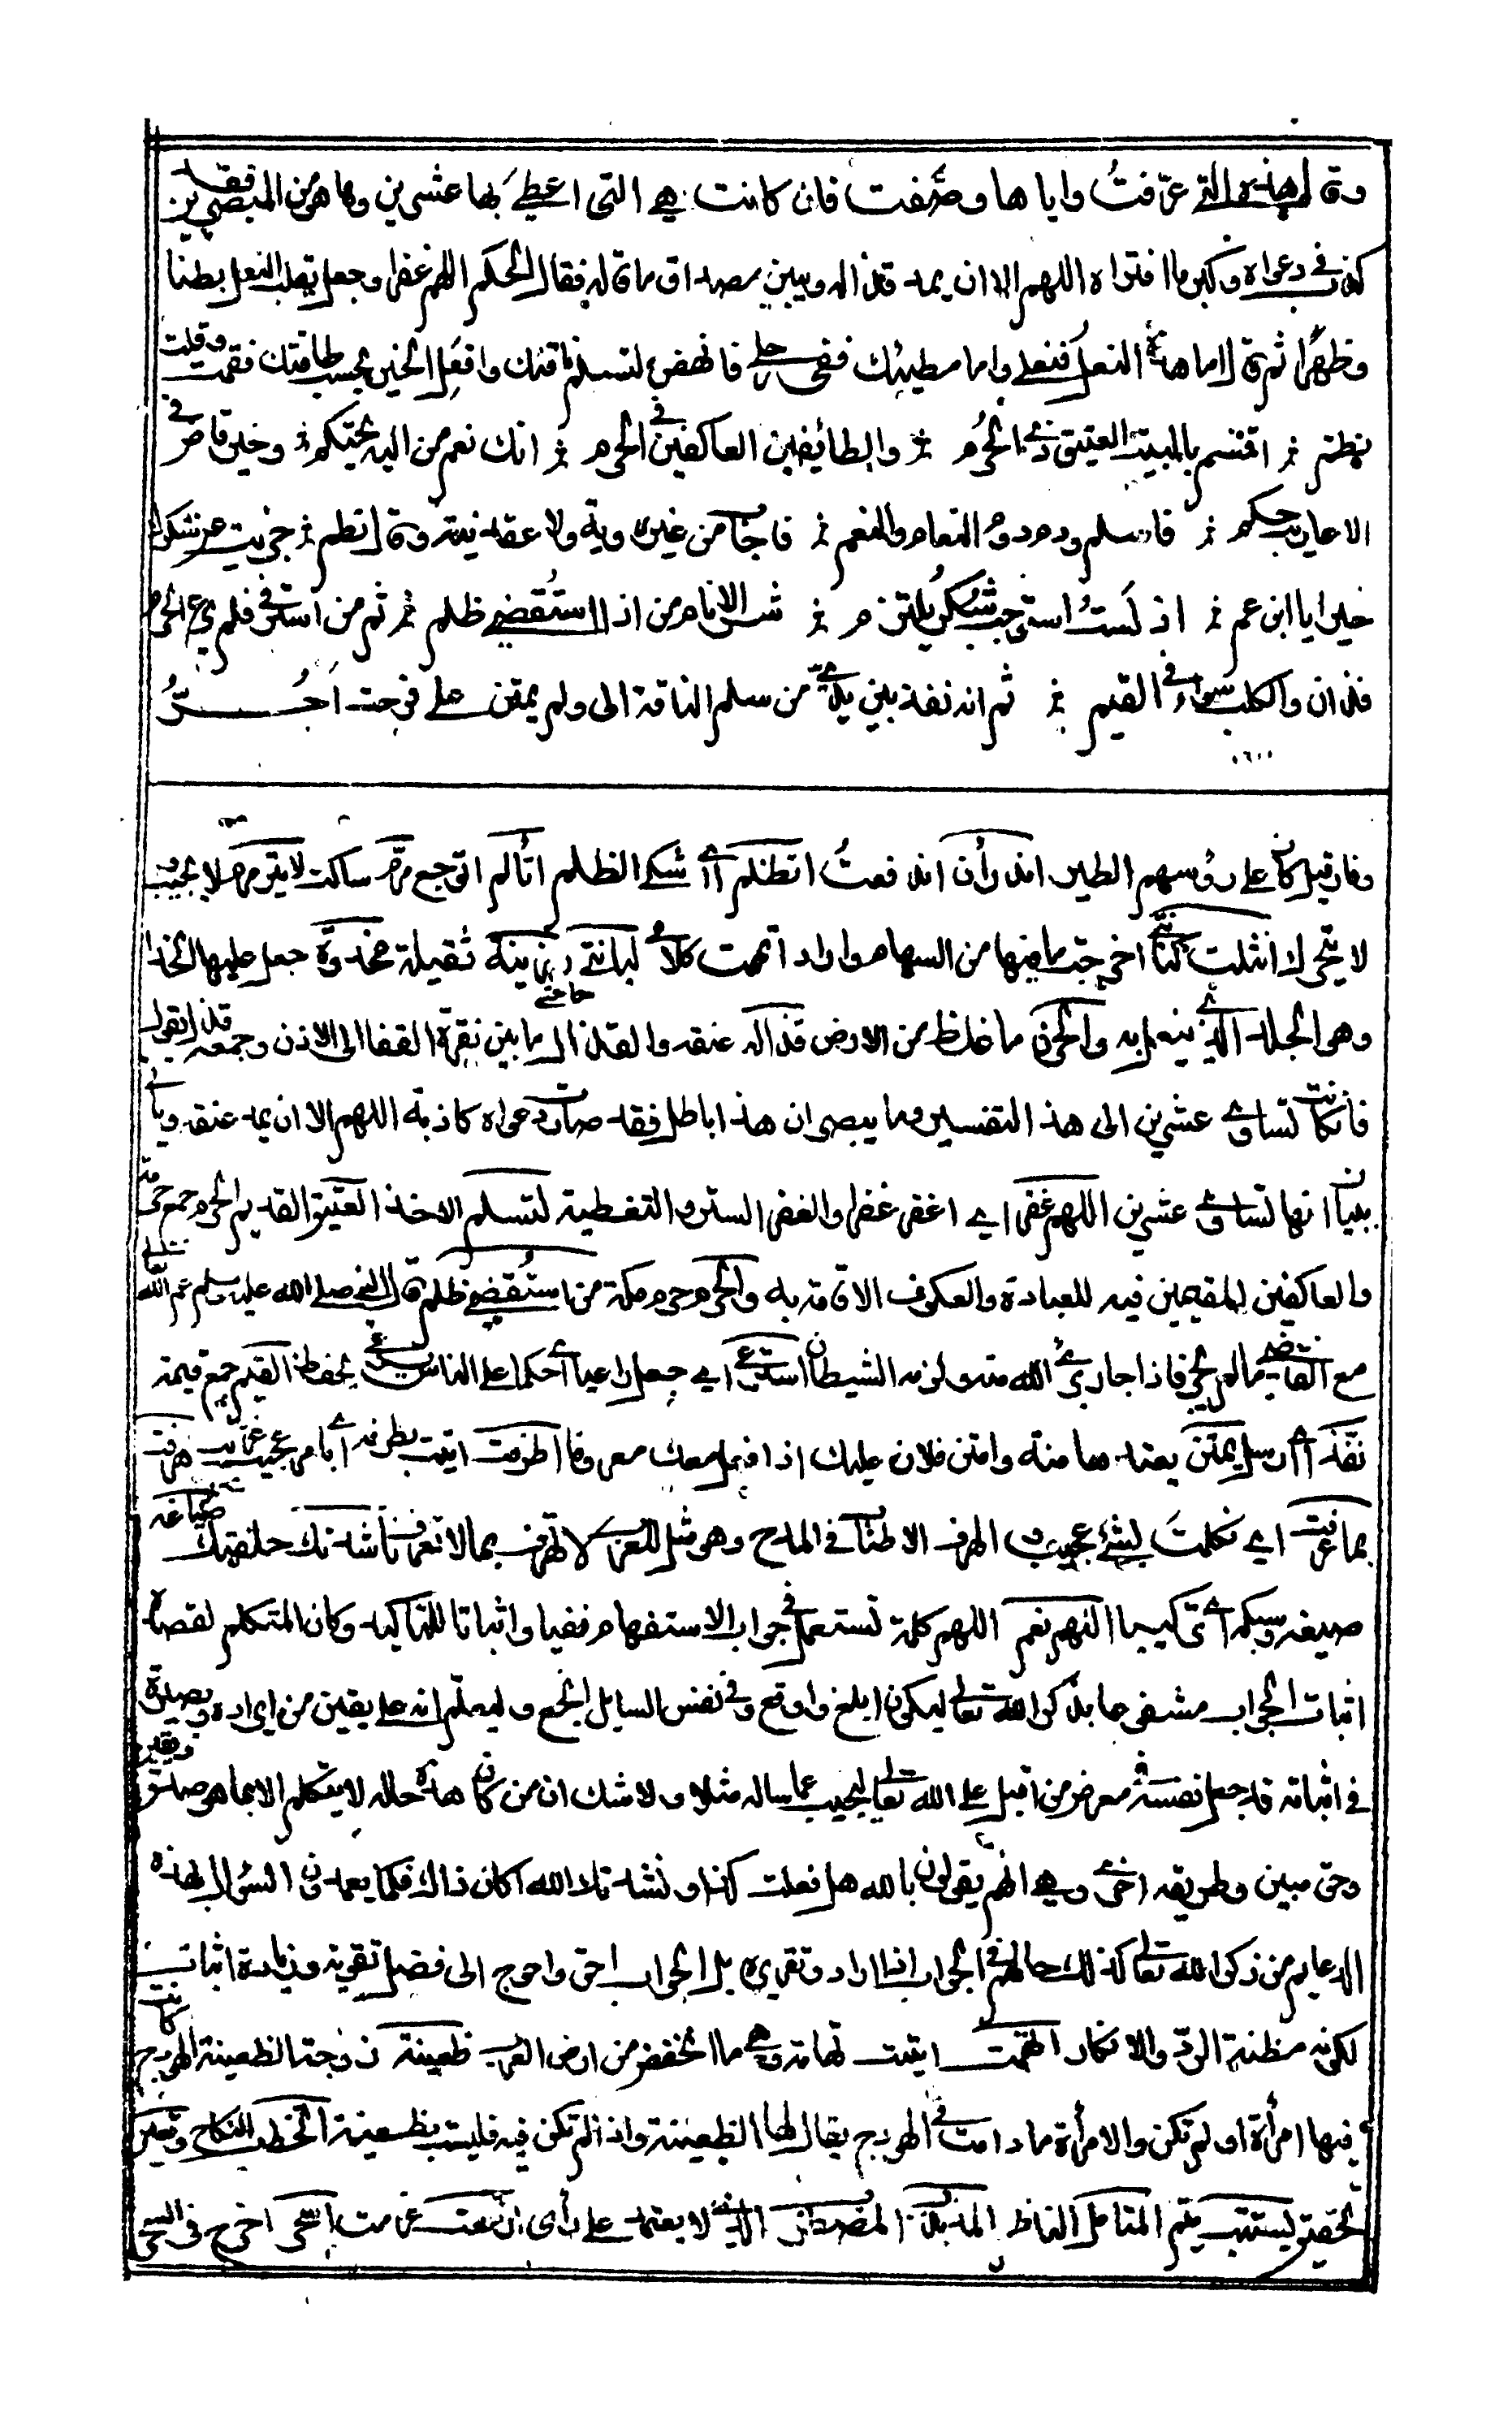 وقال هذه التى عرّفتُ واياها وصّفت فان كانت هي التى اعطيَ بها عشرين وها هو من المبصرين فقد
كذب في دعواه وكبر ما افتراه اللهم الا ان يمد قذاله ويبين مصداق ما قاله فقال الحكم اللهم غفرا وجعل يقلب النعل بطنا
وظهرًا ثم قال اما هذه النعل فنعلي واما مطيتك ففي رحلي فانهض لتسلم ناقتك وافعل الخير بحسب طاقتك فقمت وقلت
نظم اقسم بالبيت العتيق ذي الحُرم والطائفين العاكفين في الحرم انك نعم من اليه يحتكم وخير قاض في
الاعاريب حكم فاسلم ودم دوم النعام والنعم فاجاب من غير روية ولا عقد نية وقال نظم جزيت عن شكرك
خيرا يا ابن عم اذ لستُ استوجب شكرا يلتزم شر الانام من اذا استُقضي ظلم ثم من استرعي فلم يرع الحرم
فذان والكلب سواء في القيم ثم انه نفذ بين يدي من سلم الناقة الى ولم يمتن علي فرحت اجُرُّ
وقار قيل كان على رؤسهم الطير انذرأن اندفعتُ اتظلم اي اشكي الظلم اتألم اتوجع مرّ ساكت لا يترمرم لا يجيب و
لا يتحرك انثلت كنانتي اخرجت ما فيها من السهام واراد اتممت كلامي لبانتي حاجتي رزينة ثقيلة محذوة جعل عليها الحذا
وهو الجلد الذي ينعل به والحزن ما غلظ من الارض قذاله عنقه والقذال ما بين نقرة القفا الى الاذن وجمعه قذل يقول
فان كانت تساوي عشرين الى هذ التفسير وما يبصر ان هذا باطل فقد صارت دعواه كاذبة اللهم الا ان يمد عنقه ويأتي
ببيان انها تساوي عشرين اللهم غفرا اي اغفر غفرا والغفر الستر والتغطية لتسلم الاخذ العتيق القديم الحرم جمع حرمة
والعاكفين المقيمين فيه للعبادة والعكوف الاقامة به والحرم حرم مكة من استُقضي ظلم قال النبي صلى الله عليه وسلم ان الله تعالى
مع القاضي مالم يجر فاذا جار برئ الله منه ولزمه الشيطان استرعي اي جعل راعيا اي حكما على الناس يرعي يحفظ القيم جمع قيمة
نفّذ اي ارسل يمتن يعتد ها منة وامتن فلان عليك اذا فعل معك معروفا اطرفت اتيت بطرفة اي بامر عجيب غريب هرفت
بما عرفت اي تكلمت بشئ عجيب و الهرف الاطناب في المدح وهو مثل للعرب لا تهرف بما لا تعرف ناشدتك حلفتك صياغة
صيغه وسبكه اي تركيبا اللهم نعم اللهم كلمة تستعمل في جواب الاستفهام نفيا واثباتا للتاكيد وكان المتكلم لقصده
اثبات الجواب مشفوعا بذكر الله تعالى ليكون ابلغ واوقع وفي نفس السايل انجع وليعلم انه على يقين من ايراده وبصيرة
في اثباته قد جعل نفسه في معرض من اقبل على الله تعالى ليجيب عما ساله مثلا و لا شك ان من كان هذه حاله لا يتكلم الا بما هو صدق ويقين
وحق مبين وطريقه اخرى وهي انهم يقولون بالله هل فعلت كذا و نشدتك الله اكان ذلك فكما يعمدون السؤال لهذه
الدعايم من ذكر الله تعالى كذلك حالهم في الجواب اذا ارادو تقريره بل الجواب احق واحوج الى فضل تقوية وزيادة اثبات
لكونه مظنة الردّ والانكار اتهمت اتيت تهامة وهي ما انخفض من ارض العرب ظعينة زوجة الظعينة الهودج كانت
فيها امرأة او لم تكن والامرأة ما دامت في الهودج يقال لها الظعينة واذا لم تكن فيه فليست بظعينة الخطب النكاح وتعين
تحقيق ليستتب يتم المتامل الناظر المذبذب المضطرب الذي لا يعتمد على رأي ازمعت عزمت اسحر اخرج في السحر